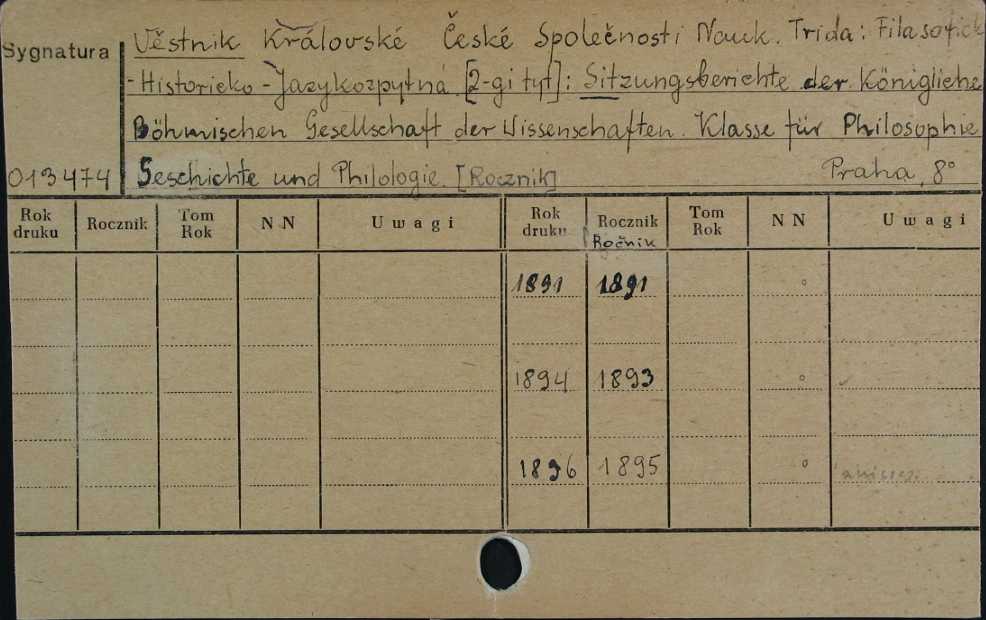 Sygnatura
Věstnik Královské České Společnosti Nauk. Trida: Filasoficko
-Historicko-Jazykozpytná [2-gi tyt]: Sitzungsberichte der Königliche
Böhmischen Gesellschaft der Wissenschaften. Klasse für Philosophie
013474 Geschichte und Philologie. [Rocznik] Praha, 8°
Rok druku Rocznik Tom Rok N N Uwagi Rok druku Rocznik Tom Rok N N Uwagi
Ročnik
1891 1891 °
1894 1893 °
1896 1895 °